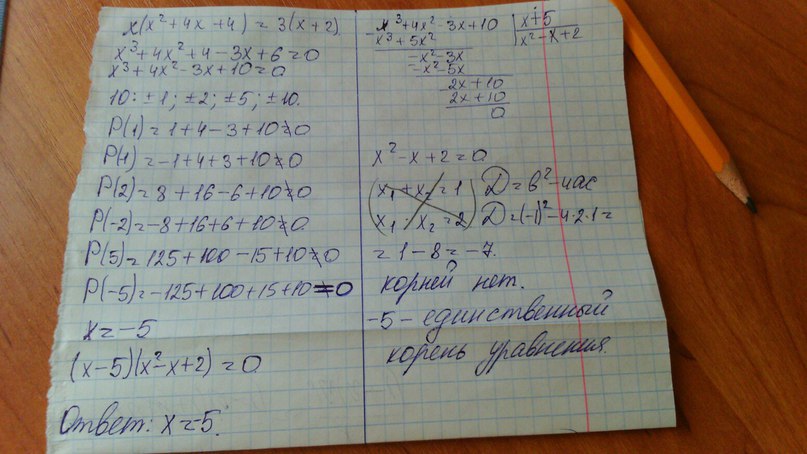 x(x²+4x+4)=3(x+2)
x³+4x²+4-3x+6=0
x³+4x²-3x+10=0
10: ±1; ±2; ±5; ±10.
P(1)=1+4-3+10≠0
P(1)=-1+4+3+10≠0
P(2)=8+16-6+10≠0
P(-2)=-8+16+6+10≠0
P(5)=125+100-15+10≠0
P(-5)=-125+100+15+10=0
x=-5
(x-5)(x²-x+2)=0
Ответ: x=-5.
x³+4x²-3x+10 | x+5
x³+5x² | x²-x+2
-x²-3x
-x²-5x
2x+10
2x+10
0
x²-x+2=0
x₁+x₂=1 D=b²-4ac
x₁·x₂=2 D=(-1)²-4·2·1=
=1-8=-7.
корней нет.
-5-единственный
корень уравнения.